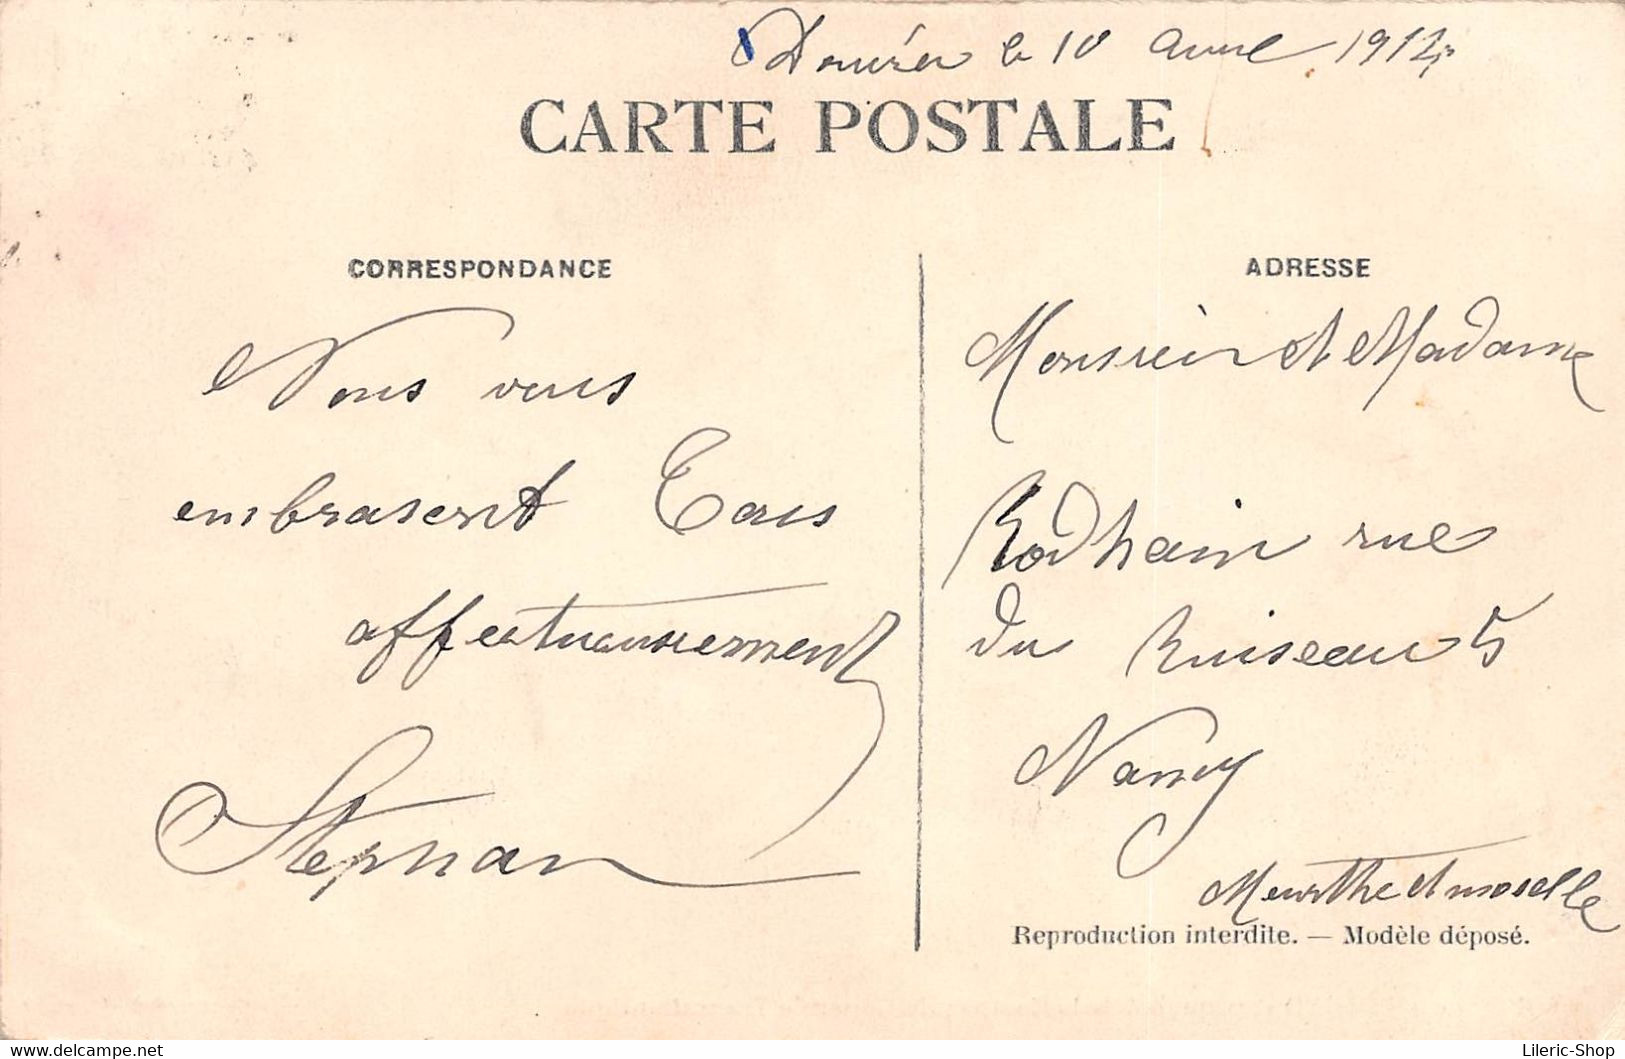 le 10 avril 1914
CARTE POSTALE
CORRESPONDANCE
Nous vous
embrasent Tous
affectueussement
Stephan
ADRESSE
Monsieur et Madame
Rodhain rue
du Ruiseau 5
Nancy
Meurthe et moselle
Reproduction interdite. — Modèle déposé.
Lileric-Shop
https://www.delcampe.net